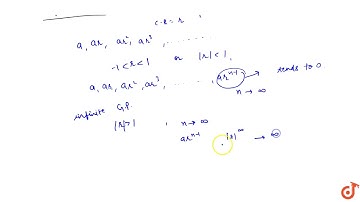 c.r = r
a, ar, ar², ar³, ........
-1 < r < 1 or |r| < 1,
a, ar, ar², ar³, ........, arⁿ⁻¹ → tends to 0
n → ∞
infinite G.P.
|r| > 1, n → ∞
arⁿ⁻¹ |r|^∞ → ∞